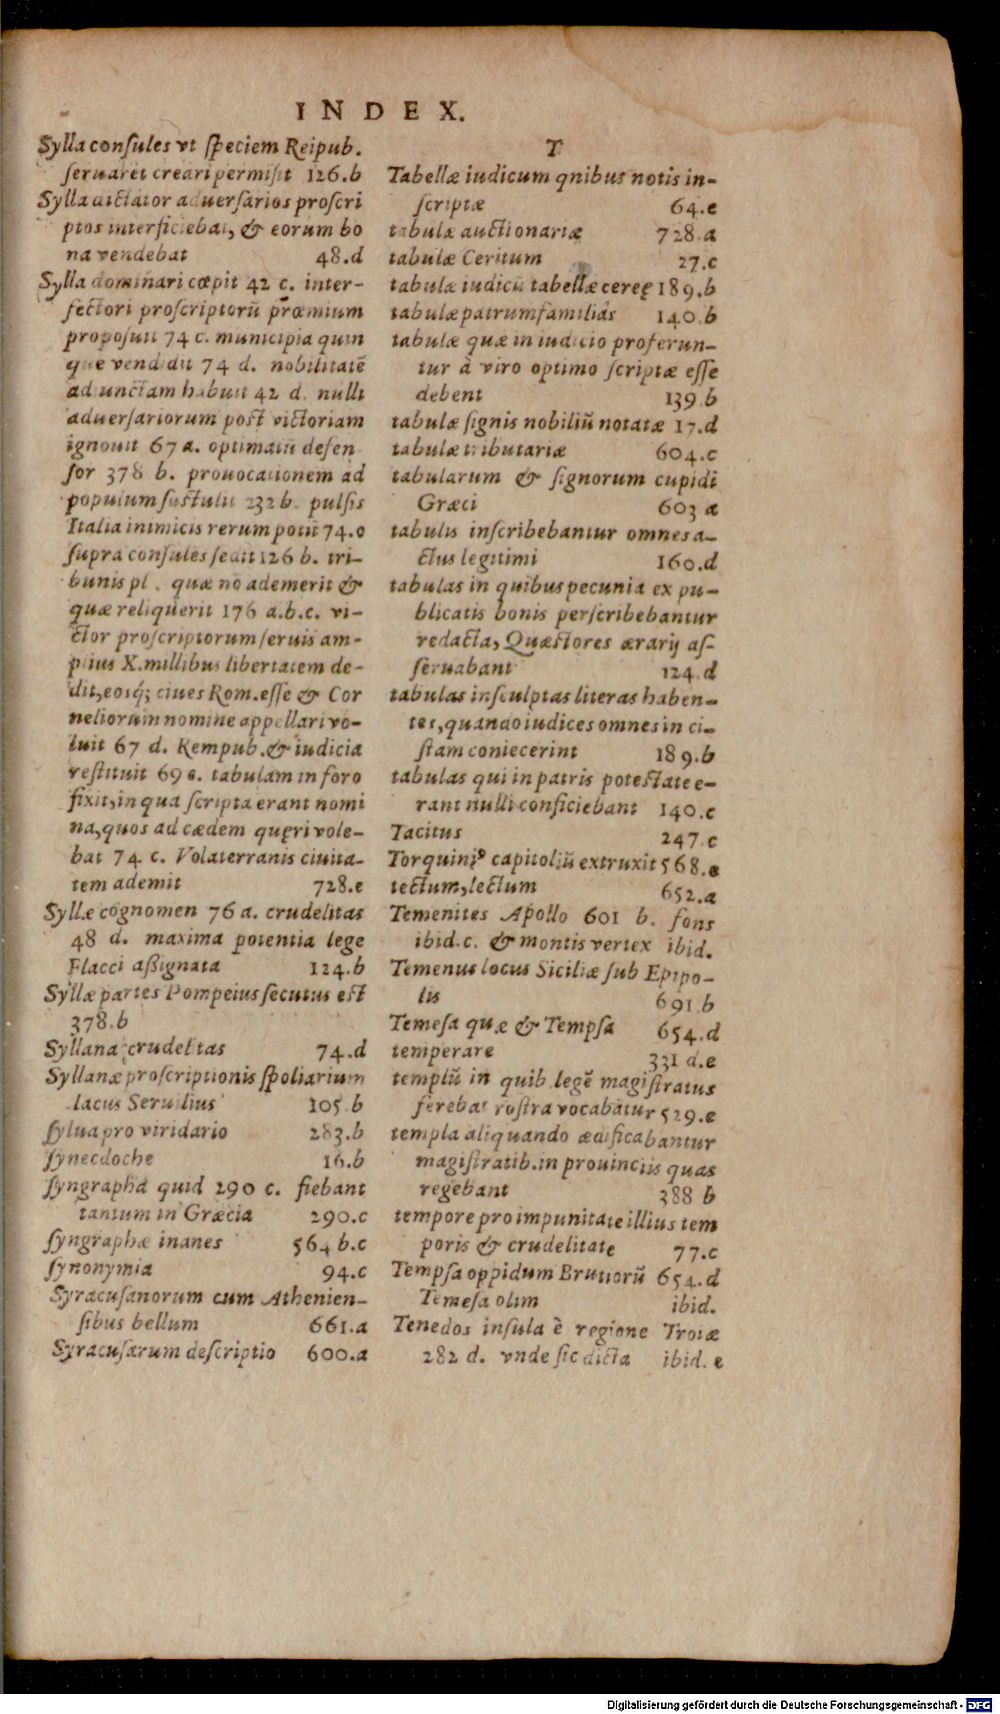 INDEX.
Sylla consules vt speciem Reipub.
seruaret creari permisit 126.b
Sylla dictator aduersarios proscri
ptos interficiebat, & eorum bo
na vendebat 48.d
Sylla dominari cœpit 42 c. inter-
fectori proscriptorũ prœmium
proposuit 74 c. municipia quin
que vendidit 74 d. nobilitatẽ
adiunctam habuit 42 d. nulli
aduersariorum post victoriam
ignouit 67 a. optimatũ defen
sor 378 b. prouocationem ad
populum sustulit 232 b. pulsis
Italia inimicis rerum potit 74.
supra consules sedit 126 b. tri-
bunis pl. quæ nõ ademerit &
quæ reliquerit 176 a.b.c. vi-
ctor proscriptorum seruis am-
plius X. millibus libertatem de-
dit, eosq; ciues Rom. esse & Cor
neliorum nomine appellari vo-
luit 67 d. Rempub. & iudicia
restituit 69 e. tabulam in foro
fixit, in qua scripta erant nomi
na, quos ad cædem quęri vole-
bat 74 c. Volaterranis ciuita-
tem ademit 728.e
Syllæ cognomen 76 a. crudelitas
48 d. maxima potentia lege
Flacci aßignata 124.b
Syllæ partes Pompeius secutus est
378.b
Syllana crudelitas 74.d
Syllanæ proscriptionis spoliarium
lacus Seruilius 105.b
sylua pro viridario 283.b
synecdoche 16.b
syngrapha quid 290 c. fiebant
tantum in Græcia 290.c
syngraphæ inanes 564 b.c
synonymia 94.c
Syracusanorum cum Athenien-
sibus bellum 661.a
Syracusarum descriptio 600.a
T
Tabellæ iudicum qnibus notis in-
scriptæ 64.e
tabulæ auctionariæ 728.a
tabulæ Ceritum 27.c
tabulæ iudicũ tabellæ cereę 189.b
tabulæ patrumfamiliâs 140.b
tabulæ quæ in iudicio proferun-
tur à viro optimo scriptæ esse
debent 139.b
tabulæ signis nobiliũ notatæ 17.d
tabulæ tributariæ 604.c
tabularum & signorum cupidi
Græci 603 a
tabulis inscribebantur omnes a-
ctus legitimi 160.d
tabulas in quibus pecunia ex pu-
blicatis bonis perscribebantur
redacta, Quæstores ærarij as-
seruabant 124.d
tabulas insculptas literas haben-
tes, quando iudices omnes in ci-
stam coniecerint 189.b
tabulas qui in patris potestate e-
rant nulli conficiebant 140.c
Tacitus 247.c
Torquiniꝰ capitoliũ extruxit 568.
tectum, lectum 652.a
Temenites Apollo 601 b. fons
ibid.c. & montis vertex ibid.
Temenus locus Siciliæ sub Epipo-
lis 691.b
Temesa quæ & Tempsa 654.d
temperare 331 d.e
templũ in quib. legẽ magistratus
ferebat rostra vocabãtur 529.e
templa aliquando ædificabantur
magistratib. in prouinciis quas
regebant 388 b
tempore pro impunitate illius tem
poris & crudelitate 77.c
Tempsa oppidum Brutiorũ 654.d
Temesa olim ibid.
Tenedos insula è regione Troiæ
282 d. vnde sic dicta ibid. e
Digitalisierung gefördert durch die Deutsche Forschungsgemeinschaft - DFG